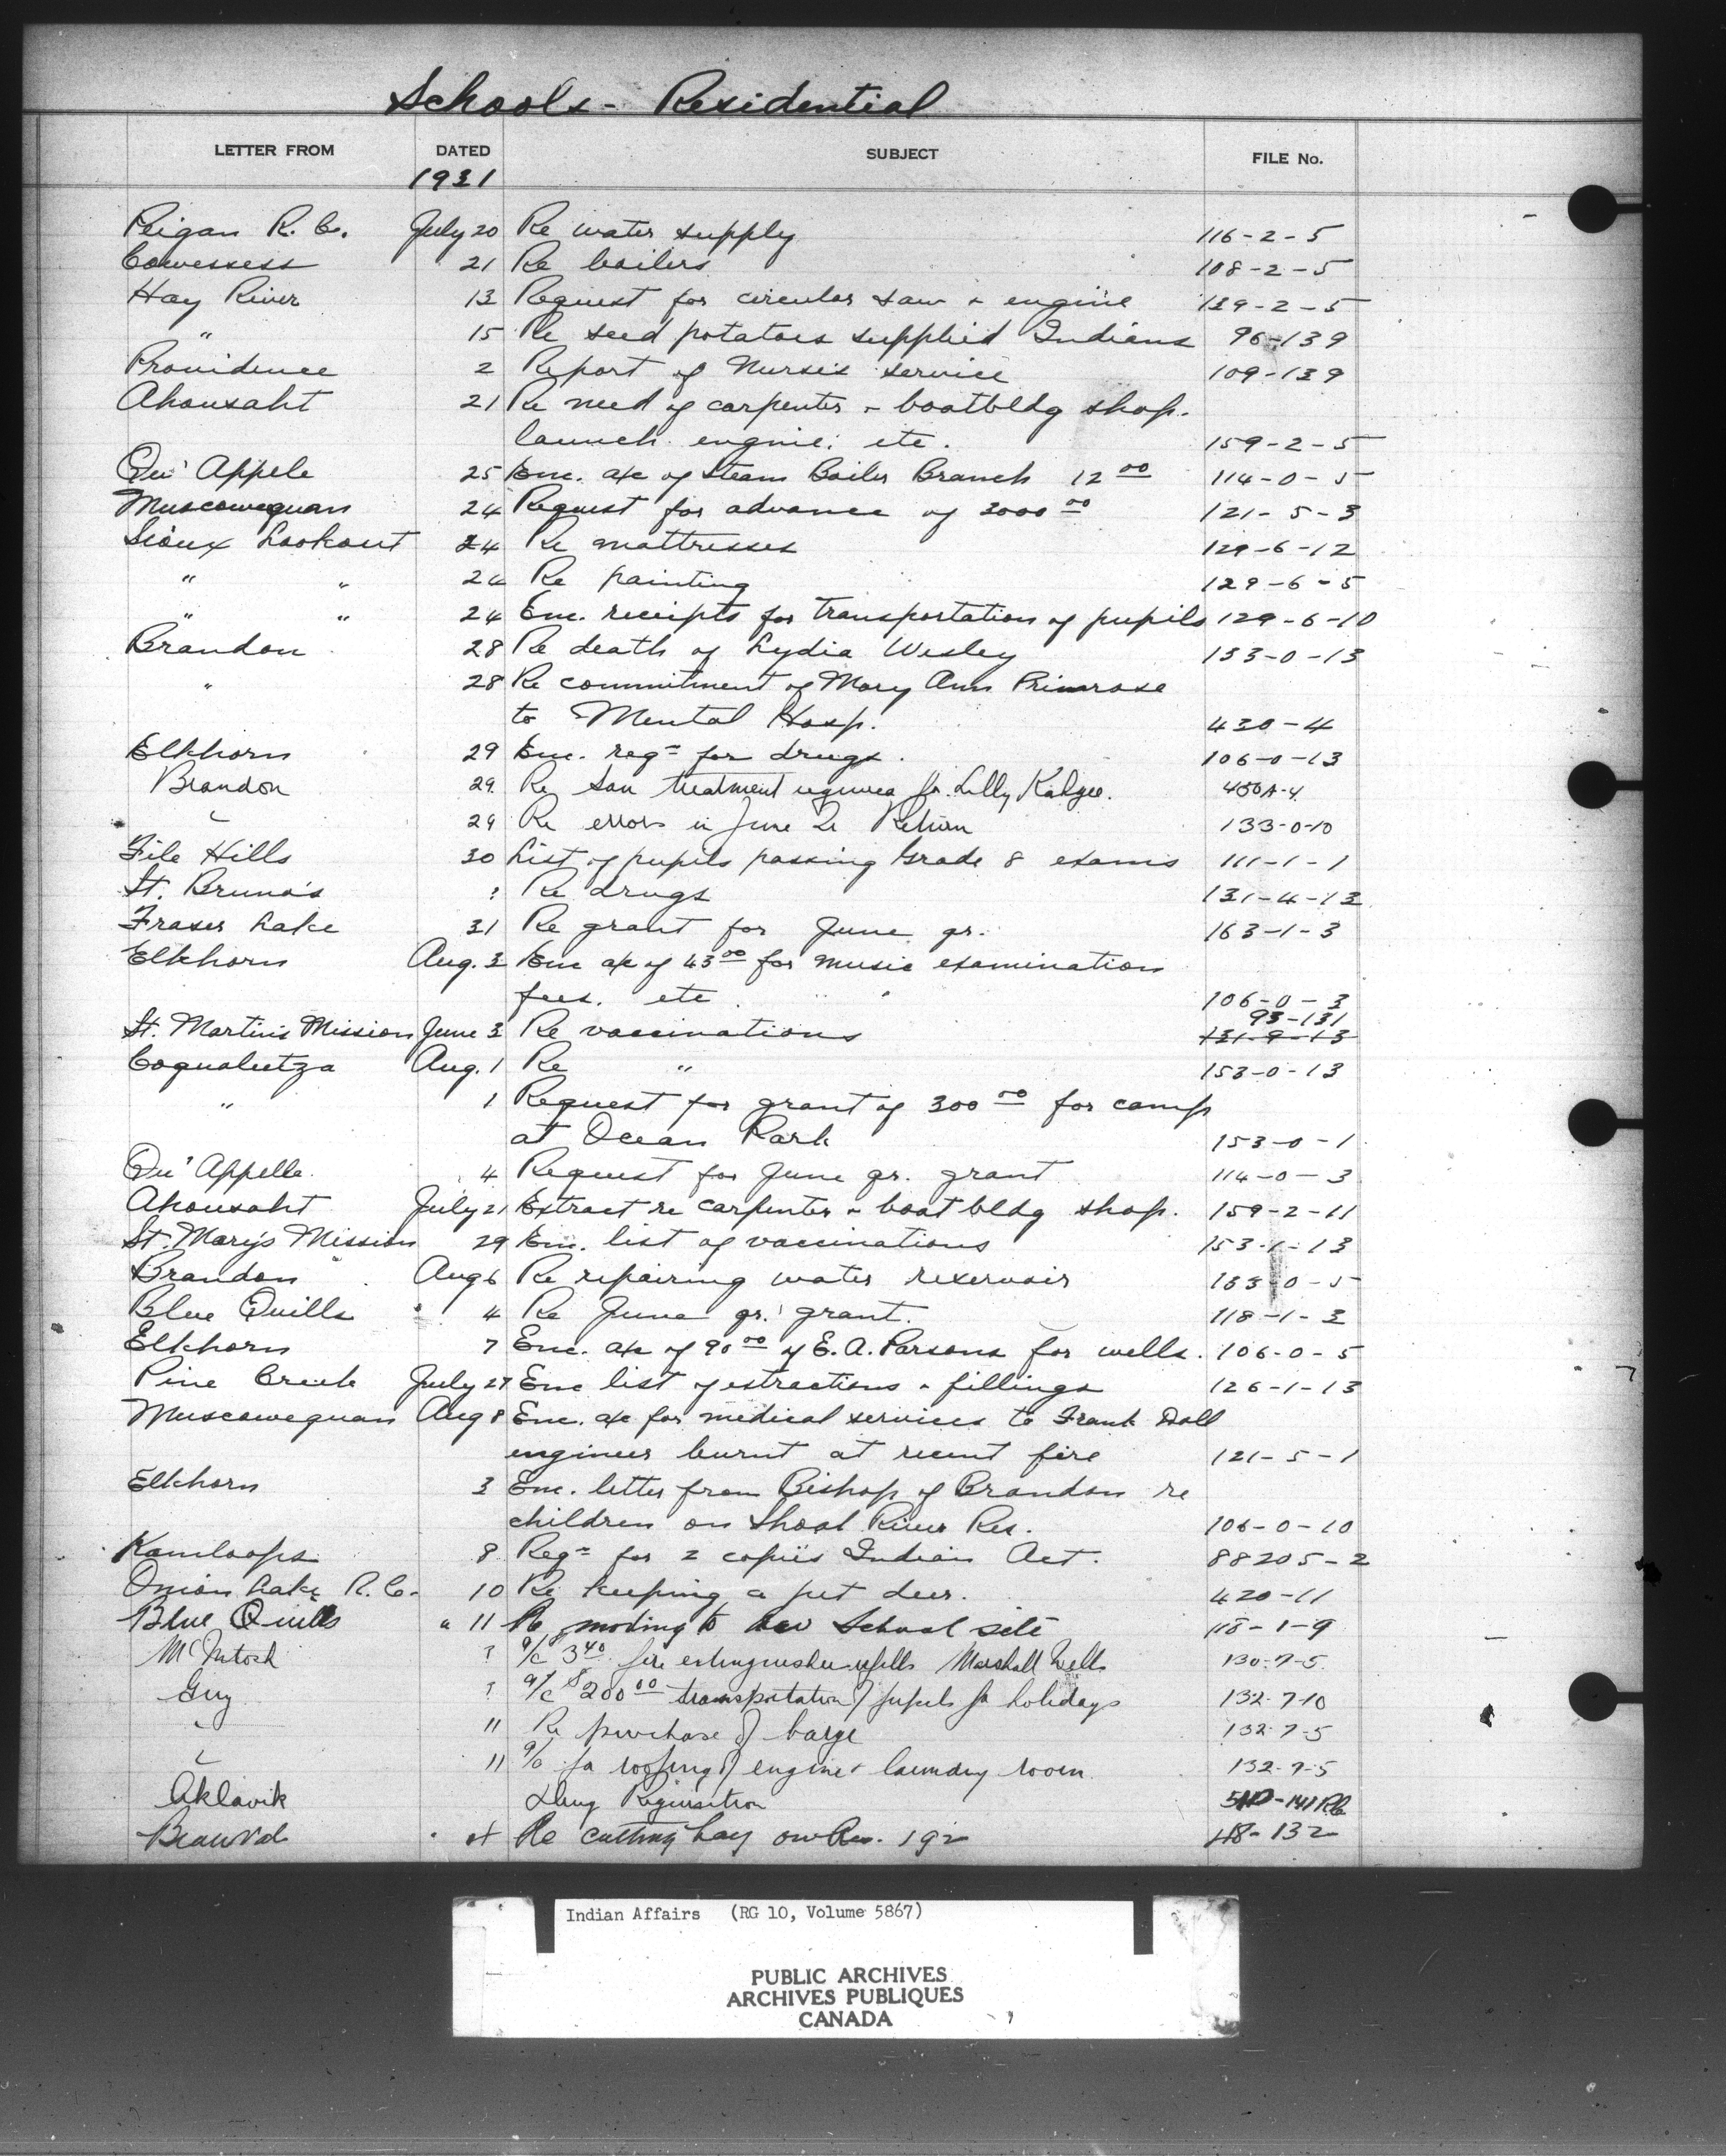 Schools - Residential
LETTER FROM DATED SUBJECT FILE No.
1931
Peigan R. C. July 20 Re water supply 116-2-5
Cowessess 21 Re boilers 108-2-5
Hay River 13 Request for circular saw & engine 139-2-5
" 15 Re seed potatoes supplied Indians 96-139
Providence 2 Report of Nurse's service 109-139
Ahousaht 21 Re need of carpenter & boatbldg shop.
launch engine. etc. 159-2-5
Qu' Appele 25 Enc. a/c of Steam Boiler Branch 12 00 114-0-5
Muscowequan 24 Request for advance of 2000 00 121-5-3
Sioux Lookout 24 Re mattresses 129-6-12
" " 24 Re painting 129-6-5
" " 24 Enc. receipts for transportation of pupils 129-6-10
Brandon 28 Re death of Lydia Wesley 133-0-13
" 28 Re commitment of Mary Ann Primrose
to Mental Hosp. 430-4
Elkhorn 29 Enc. reqn for drugs. 106-0-13
Brandon 29 Re San treatment required for Lilly 450A-4
" 29 Re errors in June Qr Return 133-0-10
File Hills 30 List of pupils passing Grade 8 exams 111-1-1
St. Bruno's ? Re drugs 131-4-13
Fraser Lake 31 Re grant for June qr. 163-1-3
Elkhorn Aug. 3 Enc a/c of 43 00 for music examination
fees. etc. 106-0-3
93-131
St. Martin's Mission June 3 Re vaccinations 131-9-13
Coqualeetza Aug. 1 Re " 153-0-13
" 1 Request for grant of 300 00 for camp
at Ocean Park 153-0-1
Qu' Appelle 4 Request for June qr. grant 114-0-3
Ahousaht July 21 Extract re carpenter & boat bldg shop. 159-2-11
St. Mary's Mission 29 Enc. list of vaccinations 153-1-13
Brandon Aug 6 Re repairing water reservoir 133-0-5
Blue Quills 4 Re June qr. grant. 118-1-3
Elkhorn 7 Enc. a/c of 90 00 of E. A. Parsons for wells. 106-0-5
Pine Creek July 27 Enc list of extractions & fillings 126-1-13
Muscowequan Aug 8 Enc. a/c for medical services to Frank Doll
engineer burnt at recent fire 121-5-1
Elkhorn 3 Enc. letter from Bishop of Brandon re
children on Shoal River Res. 106-0-10
Kamloops 8 Reqn for 2 copies Indian Act. 88205-2
Onion Lake R. C. 10 Re keeping a pet deer. 420-11
Blue Quills " 11 Re moving to new School site 118-1-9
McIntosh ? a/c $3 40 fire extinguisher refills Marshall Wells 130-7-5
Guy ? a/c $200 00 transportation of pupils for holidays 132-7-10
" 11 Re purchase of barge 132-7-5
" 11 a/c for roofing of engine & laundry room 132-7-5
Aklavik Drug Requisition
Beauval Re cutting hay on Res. 192 118-132
Indian Affairs (RG 10, Volume 5867)
PUBLIC ARCHIVES
ARCHIVES PUBLIQUES
CANADA